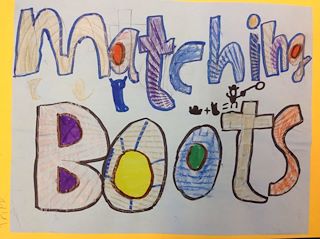 Matching
Boots